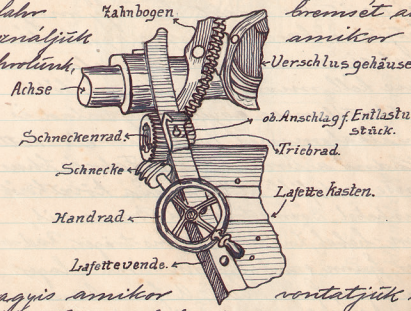 lahr
bremsét a
Zahnbogen
ználjük
amikor
Verschlus gehäuse
Achse
ob. Anschlag f. Entlastu
stück.
Schneckenrad.
Triebrad.
Schnecke
Lafette kasten.
Handrad
Lafettevende.
agyis amikor
vontatjük